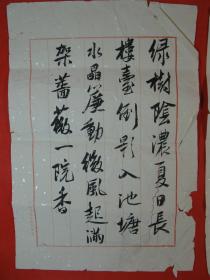 绿樹陰濃夏日長
樓臺倒影入池塘
水晶簾動微風起滿
架薔薇一院香